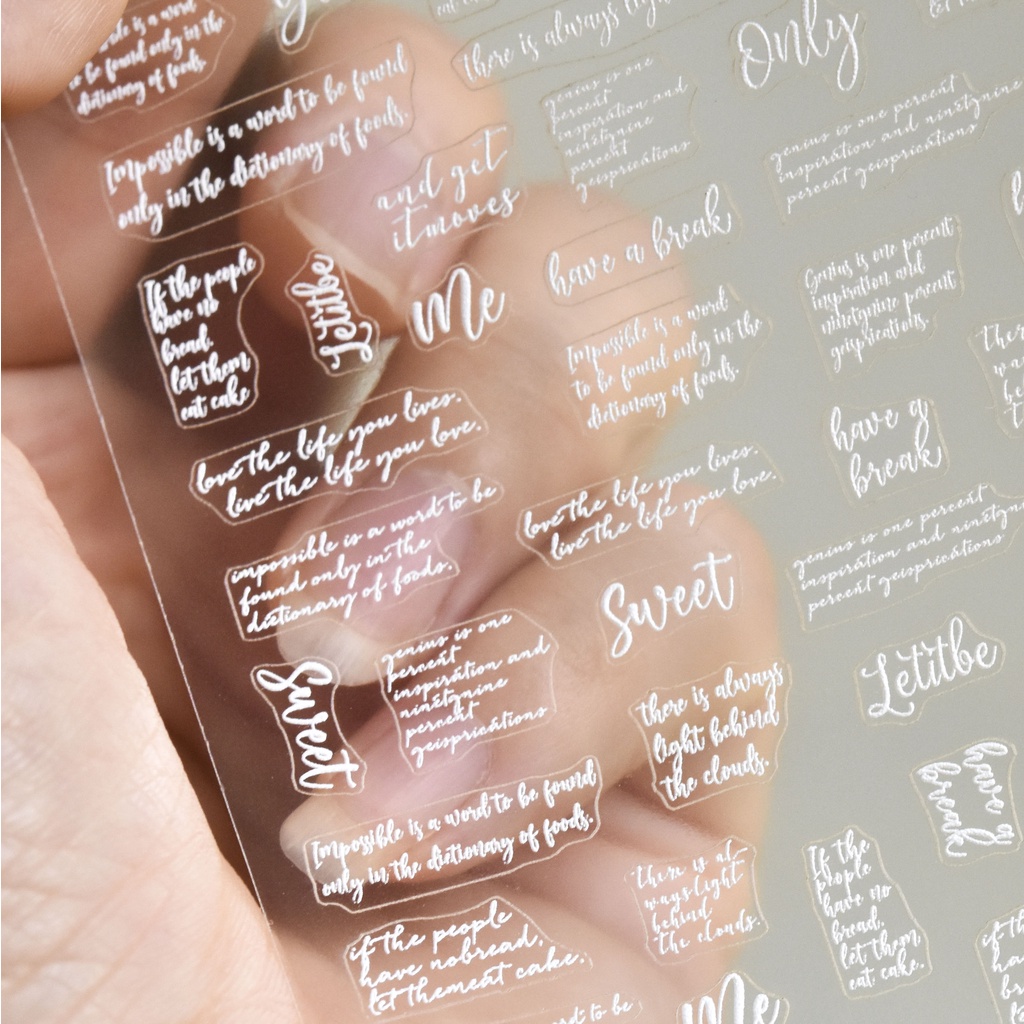 is a word
to be found only in the
dictionary of foods.
there is always
Only
Impossible is a word to be found
only in the dictionary of foods.
and get
itmoves
genius is one
percent
inspiration and
ninetynine
percent
geisprications
genius is one percent
inspiration and ninetynine
percent geisprications
If the people
have no
bread.
let them
eat cake
Letitbe
Me
have a break
Impossible is a word
to be found only in the
dictionary of foods.
Genius is one percent
inspiration and
ninetynine percent
geisprications.
love the life you lives.
live the life you love.
have a
break
impossible is a word to be
found only in the
dictionary of foods.
love the life you lives.
live the life you love.
genius is one percent
inspiration and
percent geisprications
Sweet
Letitbe
Sweet
genius is one
percent
inspiration and
ninetynine
percent
geisprications
there is always
light behind
the clouds.
have a
break
Impossible is a word to be found
only in the dictionary of foods.
there is al-
ways light
behind
the clouds.
If the
people
have no
bread,
let them
eat cake.
if the people
have nobread,
let themeat cake.
word to be
Me